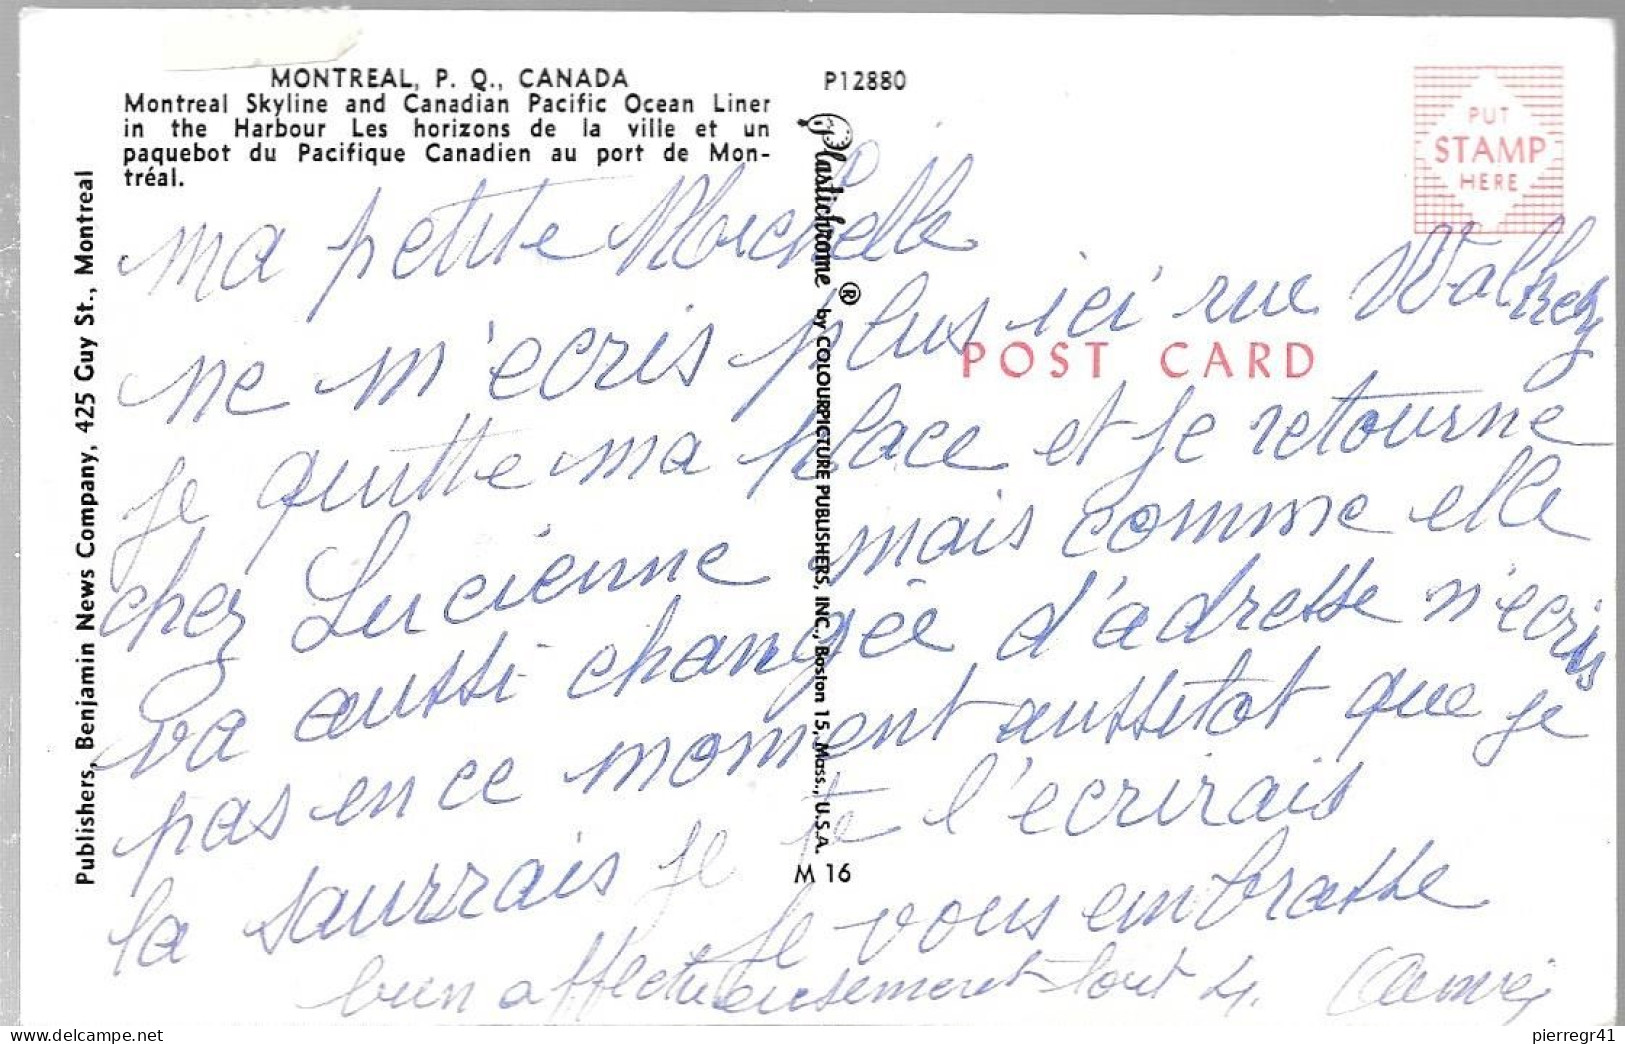 MONTREAL, P. Q., CANADA
Montreal Skyline and Canadian Pacific Ocean Liner
in the Harbour Les horizons de la ville et un
paquebot du Pacifique Canadien au port de Mon-
tréal.
P12880
PUT
STAMP
HERE
Publishers, Benjamin News Company, 425 Guy St., Montreal
Plastichrome ® by COLOURPICTURE PUBLISHERS, INC., Boston 15, Mass., U.S.A.
M 16
POST CARD
ma petite Michelle
ne m'ecris plus ici rue
je quitte ma place et je retourne
chez Lucienne mais comme elle
va aussi changée d'adresse n'ecris
pas en ce moment aussitot que je
la saurrais je te l'ecrirais
je vous embrasse
bien affectueusement tout 4.
pierregr41